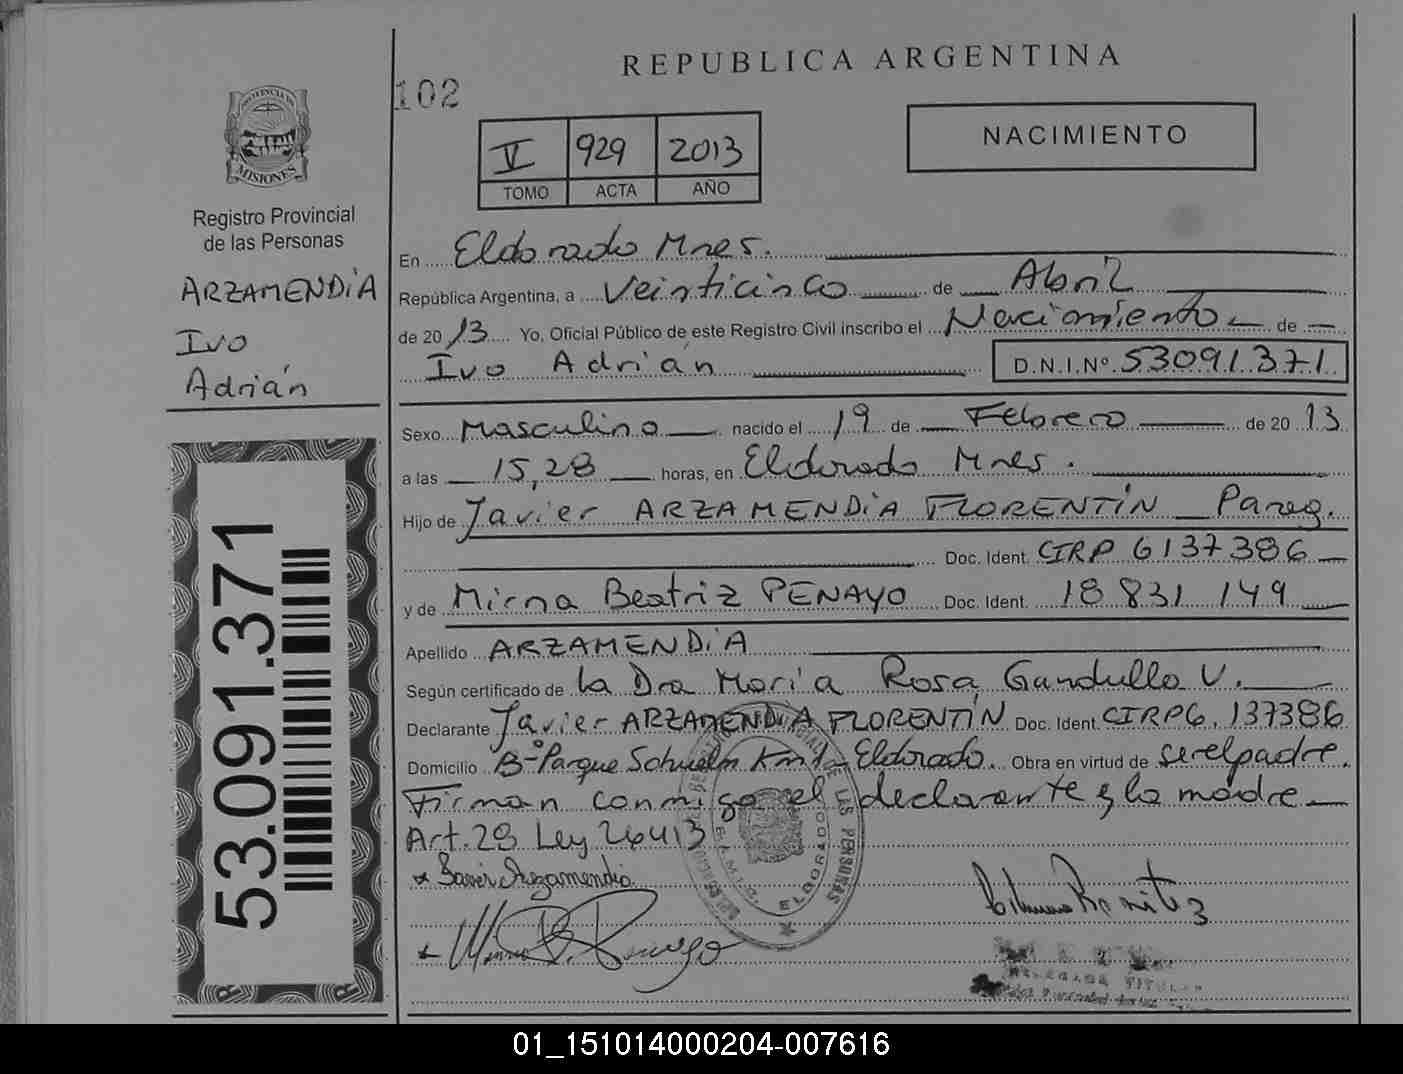 REPUBLICA ARGENTINA
102
V 929 2013
TOMO ACTA AÑO
NACIMIENTO
PROVINCIA DE
MISIONES
Registro Provincial
de las Personas
ARZAMENDIA
Ivo
Adrián
53.091.371
En Eldorado Mnes.
República Argentina, a Veinticinco de Abril
de 2013 Yo, Oficial Público de este Registro Civil inscribo el Nacimiento de
Ivo Adrián D.N.I.Nº 53091371
Sexo Masculino nacido el 19 de Febrero de 2013
a las 15,28 horas, en Eldorado Mnes.
Hijo de Javier ARZAMENDIA FLORENTÍN Parag.
Doc. Ident. CIRP 6137386
y de Mirna Beatriz PENAYO Doc. Ident. 18 831 149
Apellido ARZAMENDIA
Según certificado de la Dra María Rosa Gandullo V.
Declarante Javier ARZAMENDIA FLORENTÍN Doc. Ident. CIRP6.137386
Domicilio Bº Parque Schwelm Eldorado. Obra en virtud de ser el padre.
Firman conmigo el declarante y la madre
Art. 28 Ley 26413
ELDORADO
DE LAS PERSONAS
01_151014000204-007616